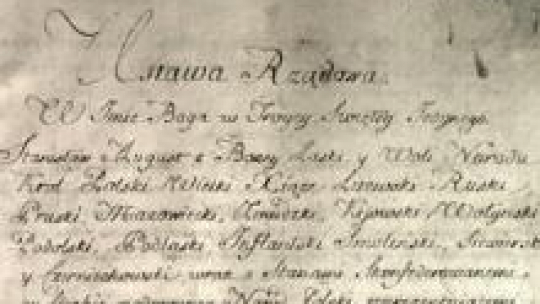 Ustawa Rządowa.
W Imie Boga w Troycy Swiętey Jedynego.
Stanisław August z Bozey Łaski y Woli Narodu
Krol Polski Wielki Xiąze Litewski Ruski
Pruski, Mazowiecki, Zmudzki, Kijowski Wołynski
Podolski, Podlaski Inflantski Smolenski, Siewierski
y Czerniechowski wraz z Stanami Skonfederowanemi
w liczbie Narod Polski